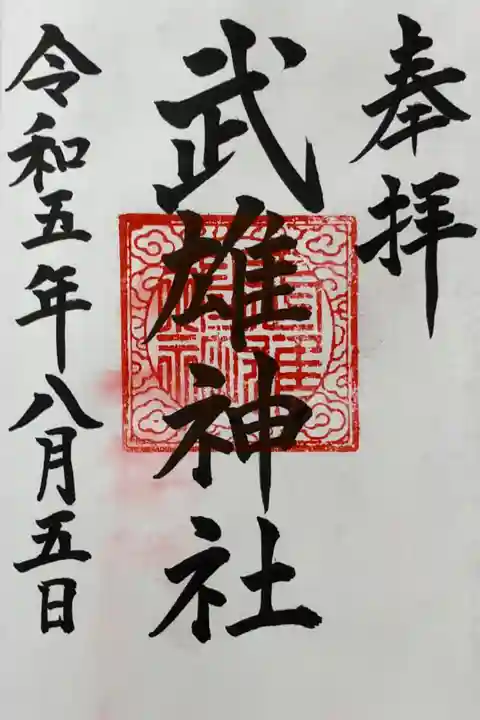 奉拝
武雄神社
令和五年八月五日